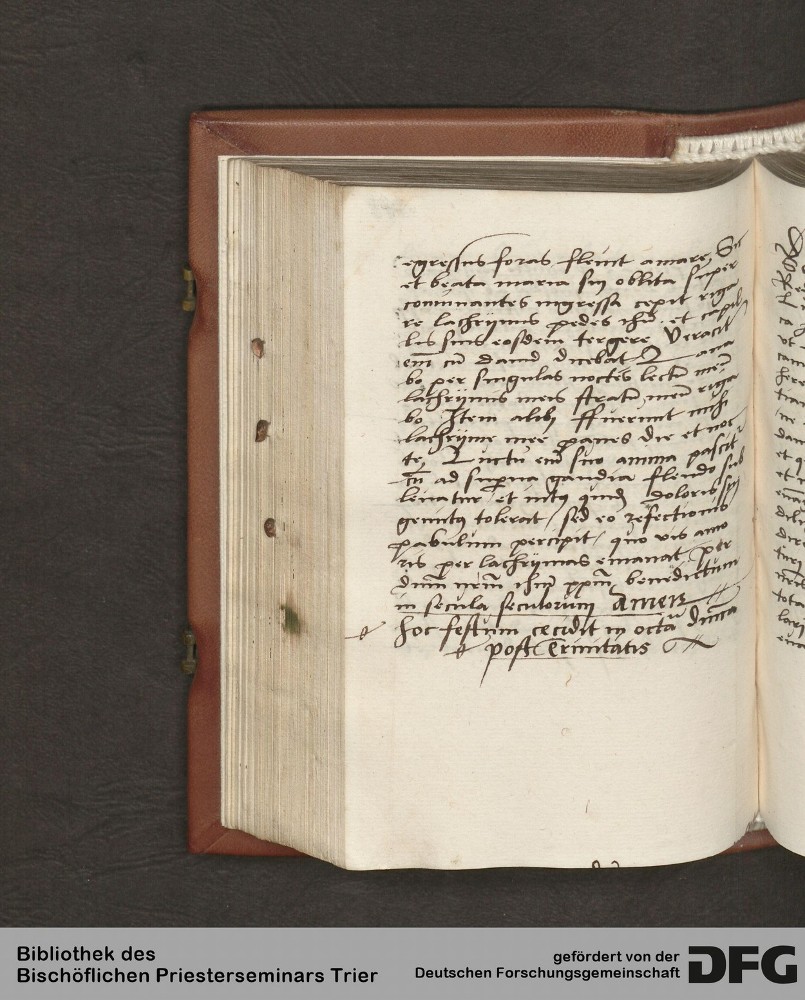 egressus foras fleuit amare, Sic
et beata maria sui oblita super
conuiuantes ingressa cepit riga
re lachrymis pedes ihu et capil
lis suis eosdem tergere Veracit
em cu dauid dicebat Laua
bo per singulas noctes lectu meu
lachrymis meis stratu meu riga
bo Item alibi ffuerunt mihi
lachryme mee panes die et noc
te, Luctu eni suo anima pascit
cu ad superna gaudia flendo sub
leuatur et intus quidem doloris sui
gemitus tolerat, sed eo refectionis
pabulum percipit, quo vis amo
ris per lachrymas emanat, per
dnm nrm ihm xpm, benedictum
in secula seculorum Amen
hoc festum cecidit in octa dnica
post Trinitatis
Bibliothek des
Bischöflichen Priesterseminars Trier
gefördert von der
Deutschen Forschungsgemeinschaft DFG